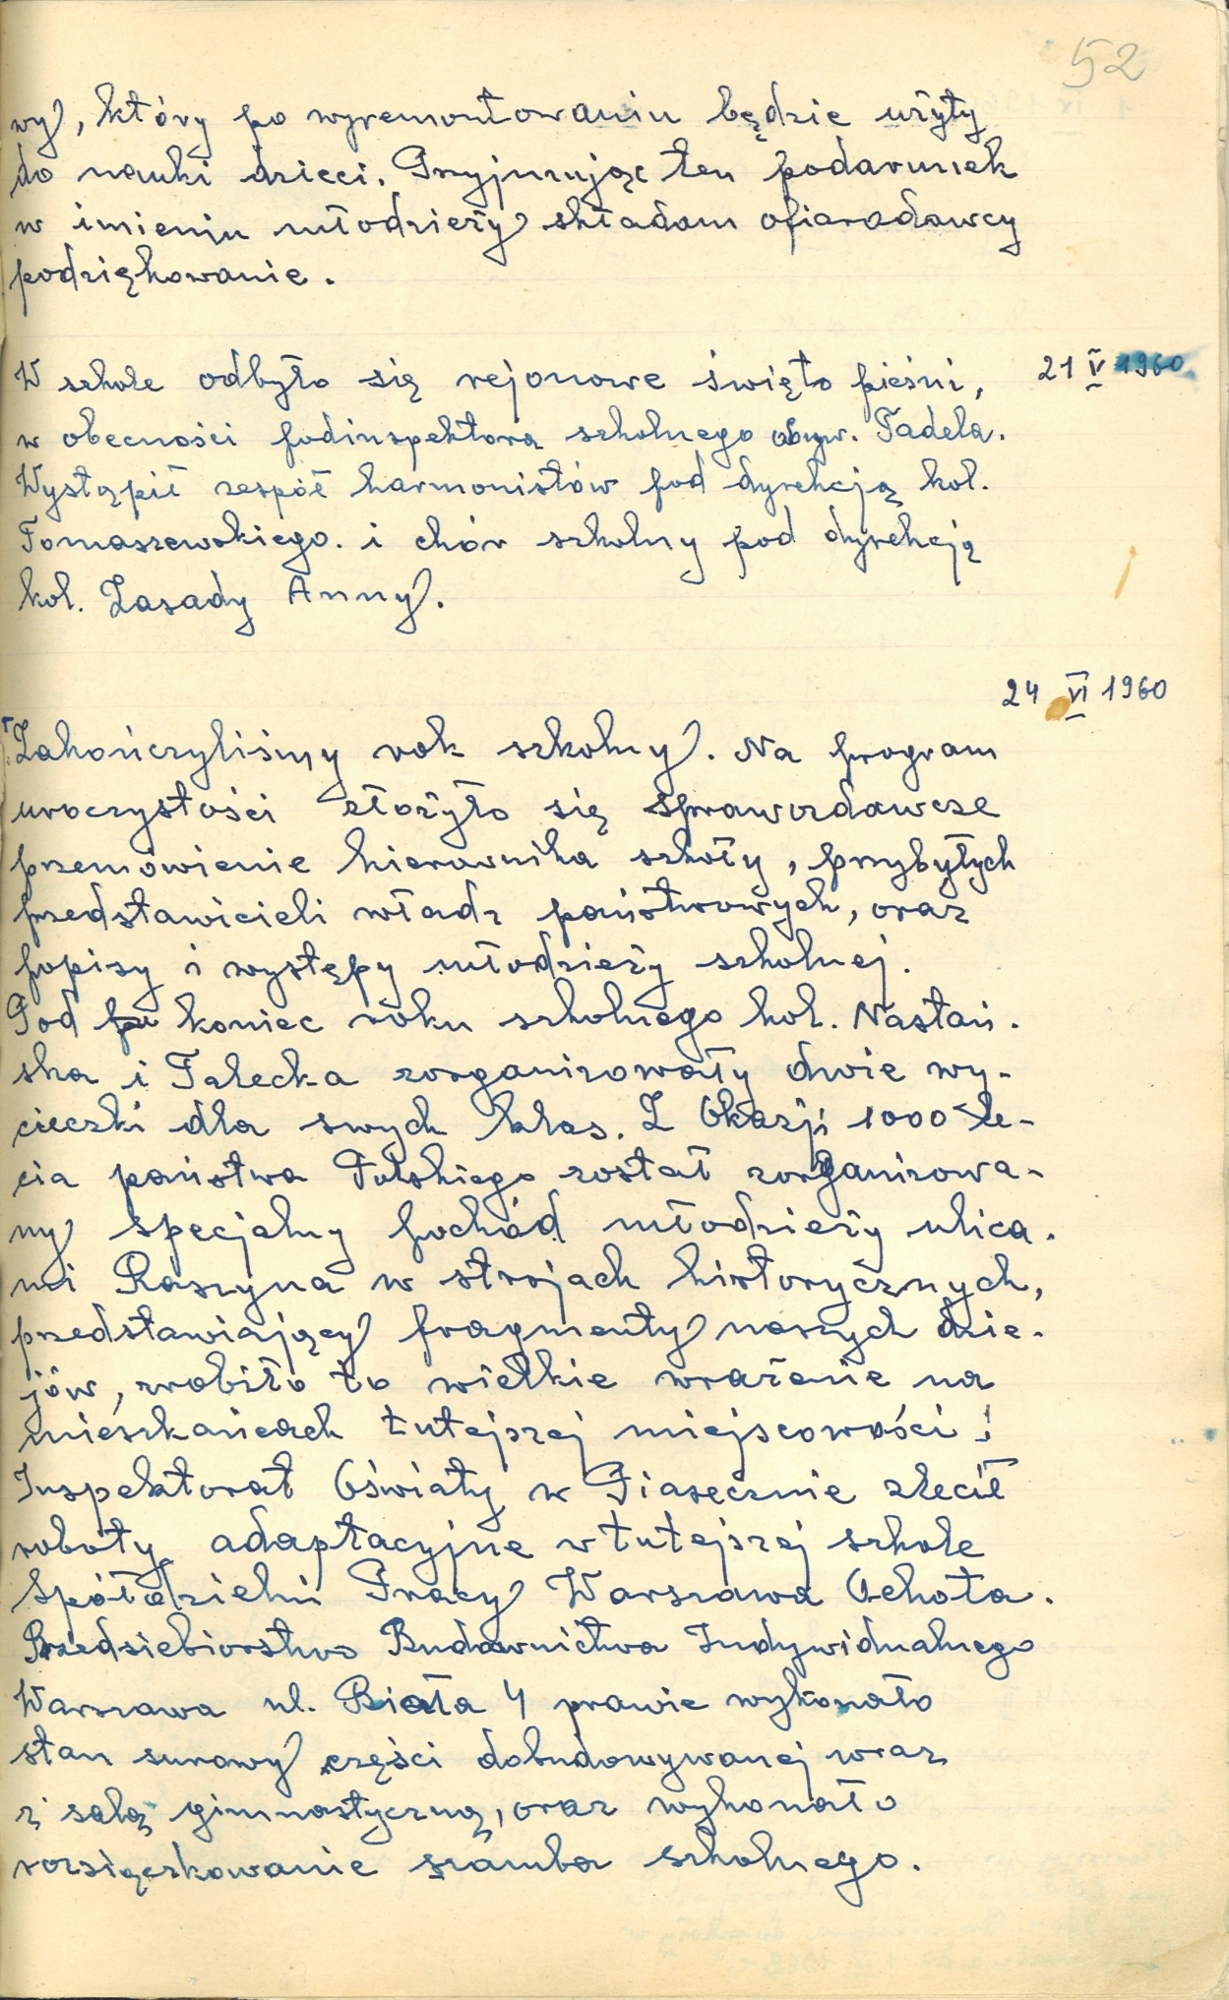 52
wy, który po wyremontowaniu będzie użyty
do nauki dzieci. Przyjmując ten podarunek
w imieniu młodzieży składam ofiarodawcy
podziękowanie.
21 V 1960
W szkole odbyło się rejonowe święto pieśni,
w obecności podinspektora szkolnego obyw. Fadela.
Wystąpił zespół harmonistów pod dyrekcją kol.
Tomaszewskiego. i chór szkolny pod dyrekcją
kol. Zasady Anny.
24 VI 1960
Zakończyliśmy rok szkolny. Na program
uroczystości złożyło się sprawozdawcze
przemówienie kierownika szkoły, przybyłych
przedstawicieli władz państwowych, oraz
popisy i występy młodzieży szkolnej.
Pod koniec roku szkolnego kol. Nastań-
ska i Falecka zorganizowały dwie wy-
cieczki dla swych klas. Z Okazji 1000-le-
cia państwa Polskiego został zorganizowa-
ny specjalny pochód młodzieży ulica-
mi Raszyna w strojach historycznych,
przedstawiający fragmenty naszych dzie-
jów, zrobiło to wielkie wrażenie na
mieszkańcach tutejszej miejscowości!
Inspektorat Oświaty w Piasecznie zlecił
roboty adaptacyjne w tutejszej szkole
Spółdzielni Pracy Warszawa Ochota.
Przedsiebiorstwo Budownictwa Indywidualnego
Warszawa ul. Biała 4 prawie wykonało
stan surowy części dobudowywanej wraz
z salą gimnastyczną, oraz wykonało
rozsączkowanie szamba szkolnego.